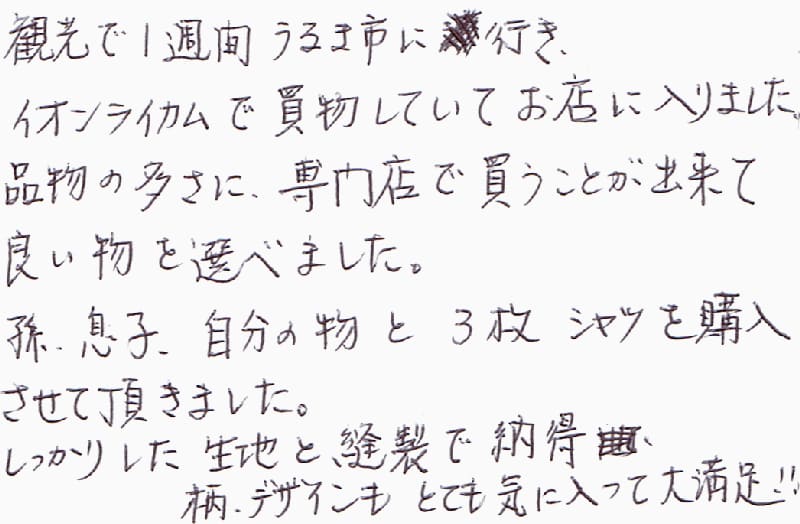 観光で1週間うるま市に行き、
イオンライカムで買物していてお店に入りました。
品物の多さに、専門店で買うことが出来て
良い物を選べました。
孫、息子、自分の物と3枚シャツを購入
させて頂きました。
しっかりした生地と縫製で納得、
柄、デザインもとても気に入って大満足!!